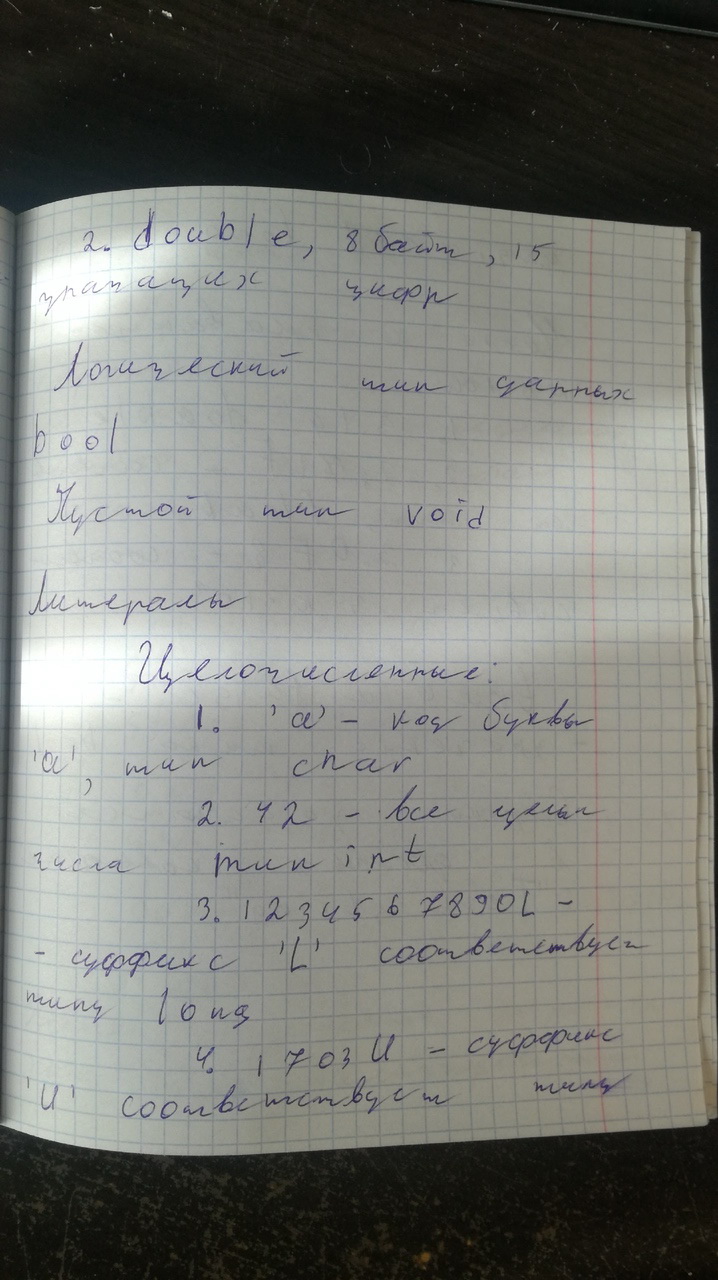 2. double, 8 байт, 15
значащих цифр
Логический тип данных
bool
Пустой тип void
Литералы
Целочисленные:
1. 'a' - код буквы
'a', тип char
2. 42 - все целые
числа тип int
3. 1234567890L -
- суффикс 'L' соответствует
типу long
4. 1703U - суффикс
'U' соответствует типу